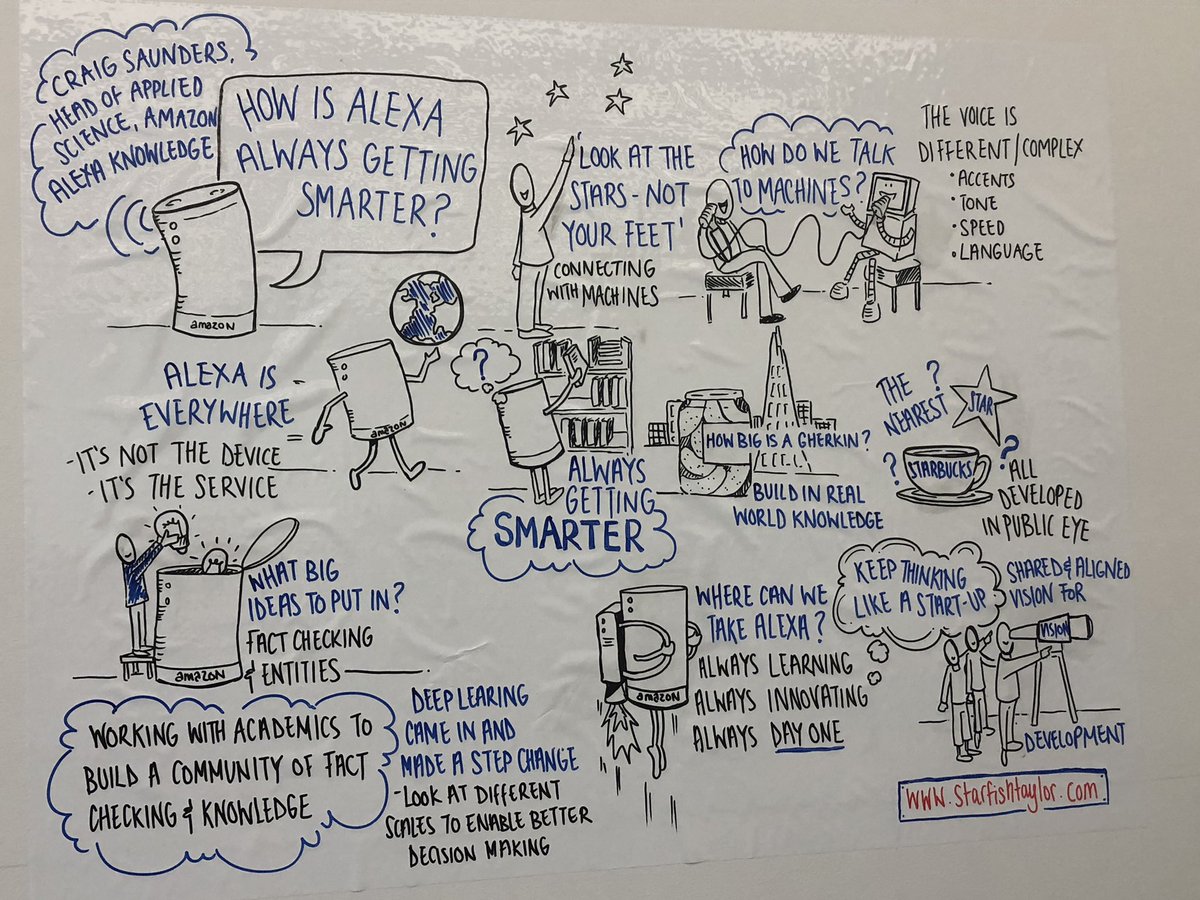 CRAIG SAUNDERS,
HEAD OF APPLIED
SCIENCE, AMAZON
ALEXA KNOWLEDGE
HOW IS ALEXA
ALWAYS GETTING
SMARTER?
amazon
'LOOK AT THE
STARS - NOT
YOUR FEET'
CONNECTING
WITH MACHINES
HOW DO WE TALK
TO MACHINES?
THE VOICE IS
DIFFERENT/COMPLEX
• ACCENTS
• TONE
• SPEED
• LANGUAGE
ALEXA IS
EVERYWHERE
- IT'S NOT THE DEVICE
- IT'S THE SERVICE
amazon
?
ALWAYS
GETTING
SMARTER
HOW BIG IS A GHERKIN?
BUILD IN REAL
WORLD KNOWLEDGE
THE ?
NEAREST
STAR
? STARBUCKS ?
ALL
DEVELOPED
IN PUBLIC EYE
WHAT BIG
IDEAS TO PUT IN?
FACT CHECKING
& ENTITIES
amazon
WORKING WITH ACADEMICS TO
BUILD A COMMUNITY OF FACT
CHECKING & KNOWLEDGE
DEEP LEARING
CAME IN AND
MADE A STEP CHANGE
- LOOK AT DIFFERENT
SCALES TO ENABLE BETTER
DECISION MAKING
amazon
WHERE CAN WE
TAKE ALEXA?
ALWAYS LEARNING
ALWAYS INNOVATING
ALWAYS DAY ONE
KEEP THINKING
LIKE A START-UP
SHARED & ALIGNED
VISION FOR
VISION
DEVELOPMENT
www.starfishtaylor.com